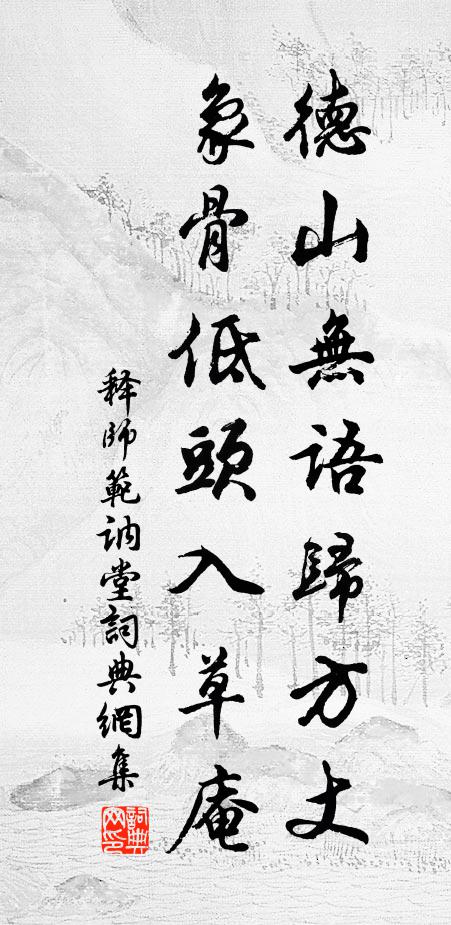 德山無語歸方丈
象骨低頭入草庵
释師範訥堂詞典網集
詞典網印